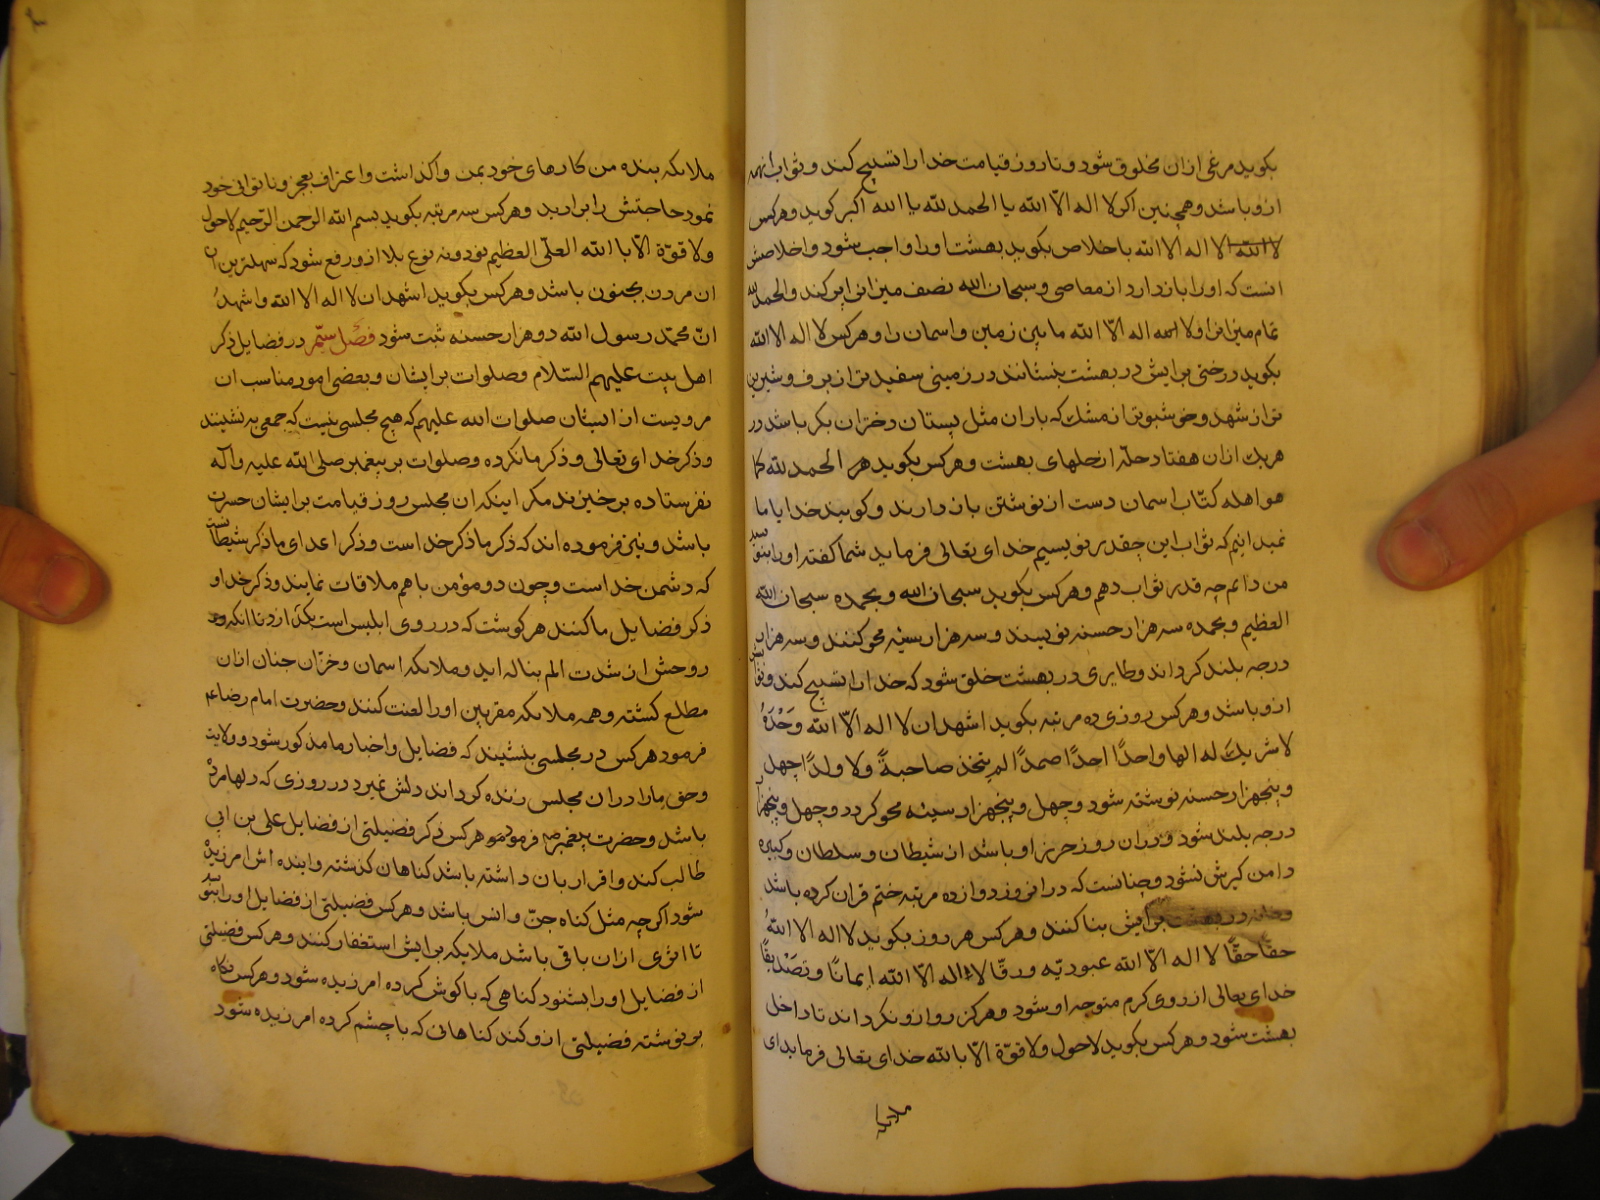 بکوید مرغی ازان مخلوق شود و تا روز قیامت خدا را تسبیح کند و ثواب انهمه
ازو باشد و همچنین اکر لا اله الّا الله یا الحمد لله یا الله اکبر کوید و هرکس
لا اله الا الله باخلاص بکوید بهشت او را واجب شود و اخلاصش
انست که او را باز دارد از معاصی و سبحان الله نصف میزان را پر کند و الحمد لله
تمام میزان را و لا اله الّا الله ما بین زمین و اسمان را و هرکس لا اله الا الله
بکوید درختی برایش در بهشت بنشانند در زمینی سفیدتر از برف و شیرین
تر از شهد و خوشبوتر از مشک که باران مثل پستان دختران بکر باشد در
هریک ازان هفتاد حلّه از حلهای بهشت و هرکس بکوید هر الحمد لله کما
هو اهله کتّاب اسمان دست از نوشتن باز دارند و کویند خدایا ما
نمیدانیم که ثواب این چقدر نویسیم خدای تعالی فرماید شما کفته او را بنویسید
من دانم چه قدر ثواب دهم و هرکس بکوید سبحان الله و بحمده سبحان الله
العظیم و بحمده سه هزار حسنه نویسند و سه هزار سیئه محو کنند و سه هزار
درجه بلند کرداند و طایری در بهشت خلق شود که خدا را تسبیح کند و ثوابش
ازو باشد و هرکس روزی ده مرتبه بکوید اشهد ان لا اله الّا الله وَحْدَهُ
لا شریک له الها واحدًا احدًا صمدًا لم یتخذ صاحبةً ولا ولدًا چهل
و پنجهزار حسنه نوشته شود و چهل و پنجهزار سیئه محو کردد و چهل و پنجهزار
درجه بلند شود و دران روز حرز او باشد از شیطان و سلطان و کبیره
دامن کیرش نشود و چنانست که در انروز دوازده مرتبه ختم قران کرده باشد
و خانه در بهشت برایش بنا کنند و هرکس هر روز بکوید لا اله الا اللهُ
حقًا حقًا لا اله الّا الله عبودیّه و رقّا لا اله الّا الله ایمانًا و تصْدیقًا
خدای تعالی از روی کرم متوجه او شود و هرکز رو ازو نکرداند تا داخل
بهشت شود و هرکس بکوید لا حول ولا قوّة الّا بالله خدای تعالی فرماید ای
ملایکه
ملایکه بنده من کارهای خود بمن واکذاشت و اعتراف بعجز و ناتوانی خود
نمود حاجتش را برارید و هرکس سه مرتبه بکوید بسم الله الرحمن الرّحیم لا حول
ولا قوّة الّا بالله العلّی العظیم نود و نه نوع بلا ازو رفع شود که سهلترین
ان مردن بجنون باشد و هرکس بکوید اشهد ان لا اله الا الله و اشهدُ
انّ محمّد رسول الله دو هزار حسنه ثبت شود فصل ستّم در فضایل ذکر
اهل بیت علیهم السّلام و صلوات بر ایشان و بعضی امور مناسب ان
مرویست از ایشان صلوات الله علیهم که هیچ مجلسی نیست که جمعی به نشینند
و ذکر خدای تعالی و ذکر ما نکرده و صلوات بر پیغمبر صلی الله علیه و آله
نفرستاده برخیزند مکر اینکه ان مجلس روز قیامت بر ایشان حسرت
باشد و نیز فرموده اند که ذکر ما ذکر خداست و ذکر اعدای ما ذکر شیطانست
که دشمن خداست و چون دو مؤمن باهم ملاقات نمایند و ذکر خدا و
ذکر فضایل ما کنند هر کوشت که در روی ابلیس است بکدازد تا انکه
روحش از شدت الم بناله اید و ملایکه اسمان و خزّان جنان ازان
مطلع کشته و همه ملایکه مقربین او را لعنت کنند و حضرت امام رضا عم
فرمود هرکس در مجلسی بنشیند که فضایل و اخبار ما مذکور شود و ولایت
و حق ما را دران مجلس زنده کرداند دلش نمیرد در روزی که دلها مرده
باشد و حضرت پیغمبر ص فرمود هرکس ذکر فضیلتی از فضایل علی بن ابی
طالب کند و اقرار بان داشته باشد کناهان کذشته و اینده اش امرزیده
شود اکرچه مثل کناه جنّ و انس باشد و هرکس فضیلتی از فضایل او را بنویسد
تا اثری ازان باقی باشد ملایکه برایش استغفار کنند و هرکس فضیلتی
از فضایل او را بشنود کناهی که باکوش کرده امرزیده شود و هرکس نکاه
بر نوشته فضیلتی ازو کند کناهانی که باچشم کرده امرزیده شود